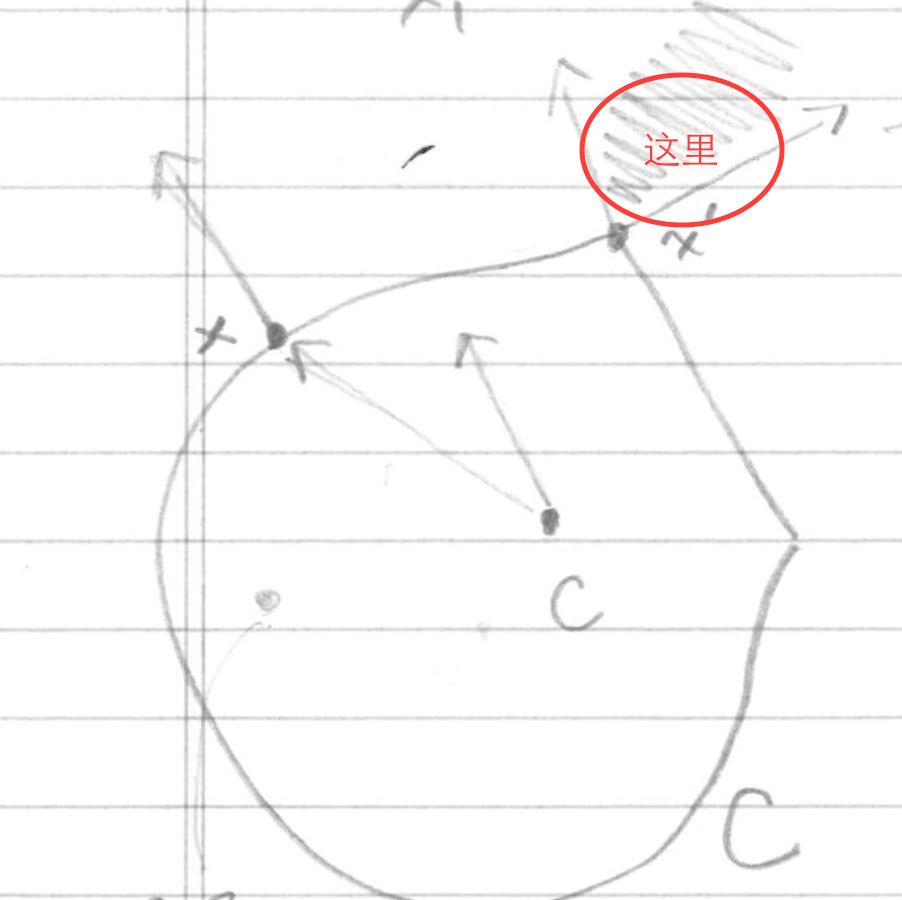 这里
x'
x
C
C